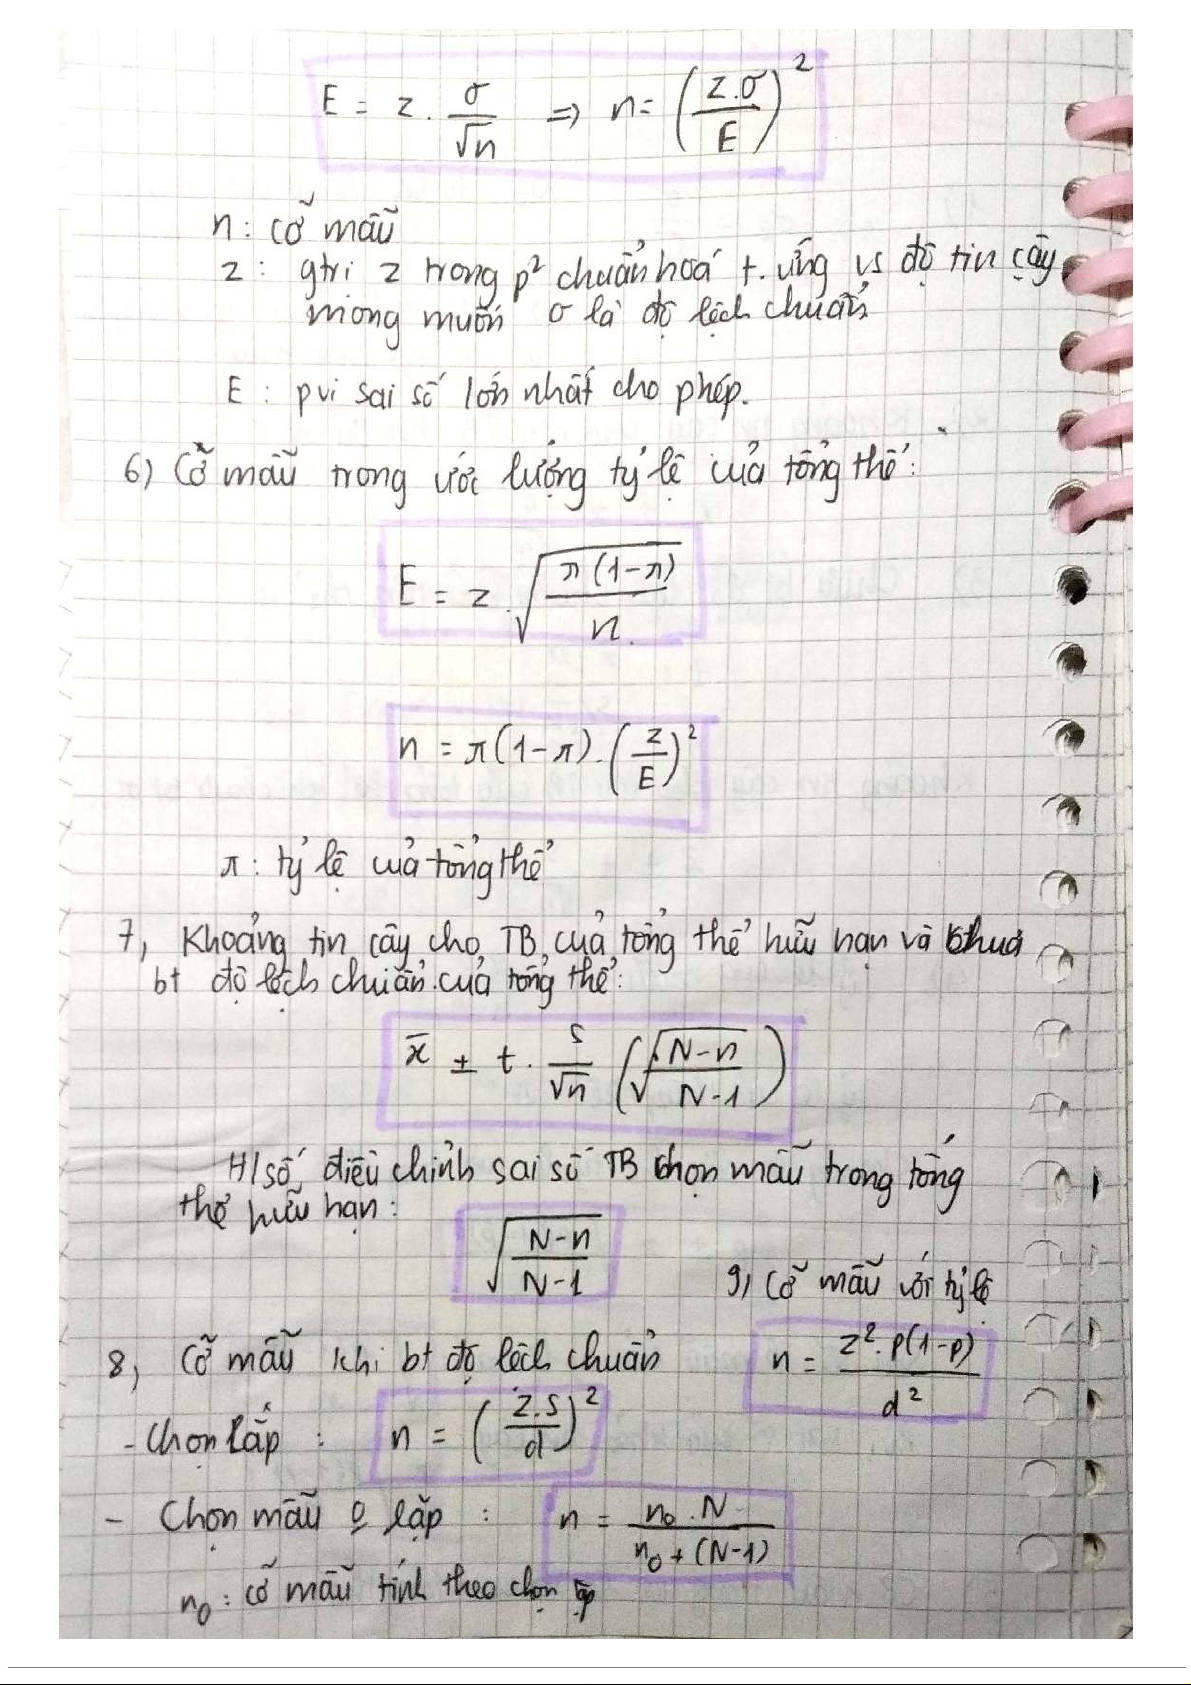 E = z . σ/√n ⇒ n = (z.σ/E)²
n : cỡ mẫu
z : gtri z trong p² chuẩn hoá t. ứng vs độ tin cậy
mong muốn σ là độ lệch chuẩn
E : pvi sai số lớn nhất cho phép.
6) Cỡ mẫu trong ước lượng tỷ lệ của tổng thể :
E = z . √(π(1-π)/n)
n = π(1-π) . (z/E)²
π : tỷ lệ của tổng thể
7, Khoảng tin cậy cho TB của tổng thể hữu hạn và chưa
bt độ lệch chuẩn của tổng thể :
x̄ ± t . s/√n (√(N-n/N-1))
H/số điều chỉnh sai số TB chọn mẫu trong tổng
thể hữu hạn :
√(N-n/N-1)
9, Cỡ mẫu với tỷ lệ
n = z².p(1-p)/d²
8, Cỡ mẫu khi bt độ lệch chuẩn
- Chọn lặp : n = (z.s/d)²
- Chọn mẫu o lặp : n = n₀.N/n₀+(N-1)
n₀ : cỡ mẫu tính theo chọn lặp